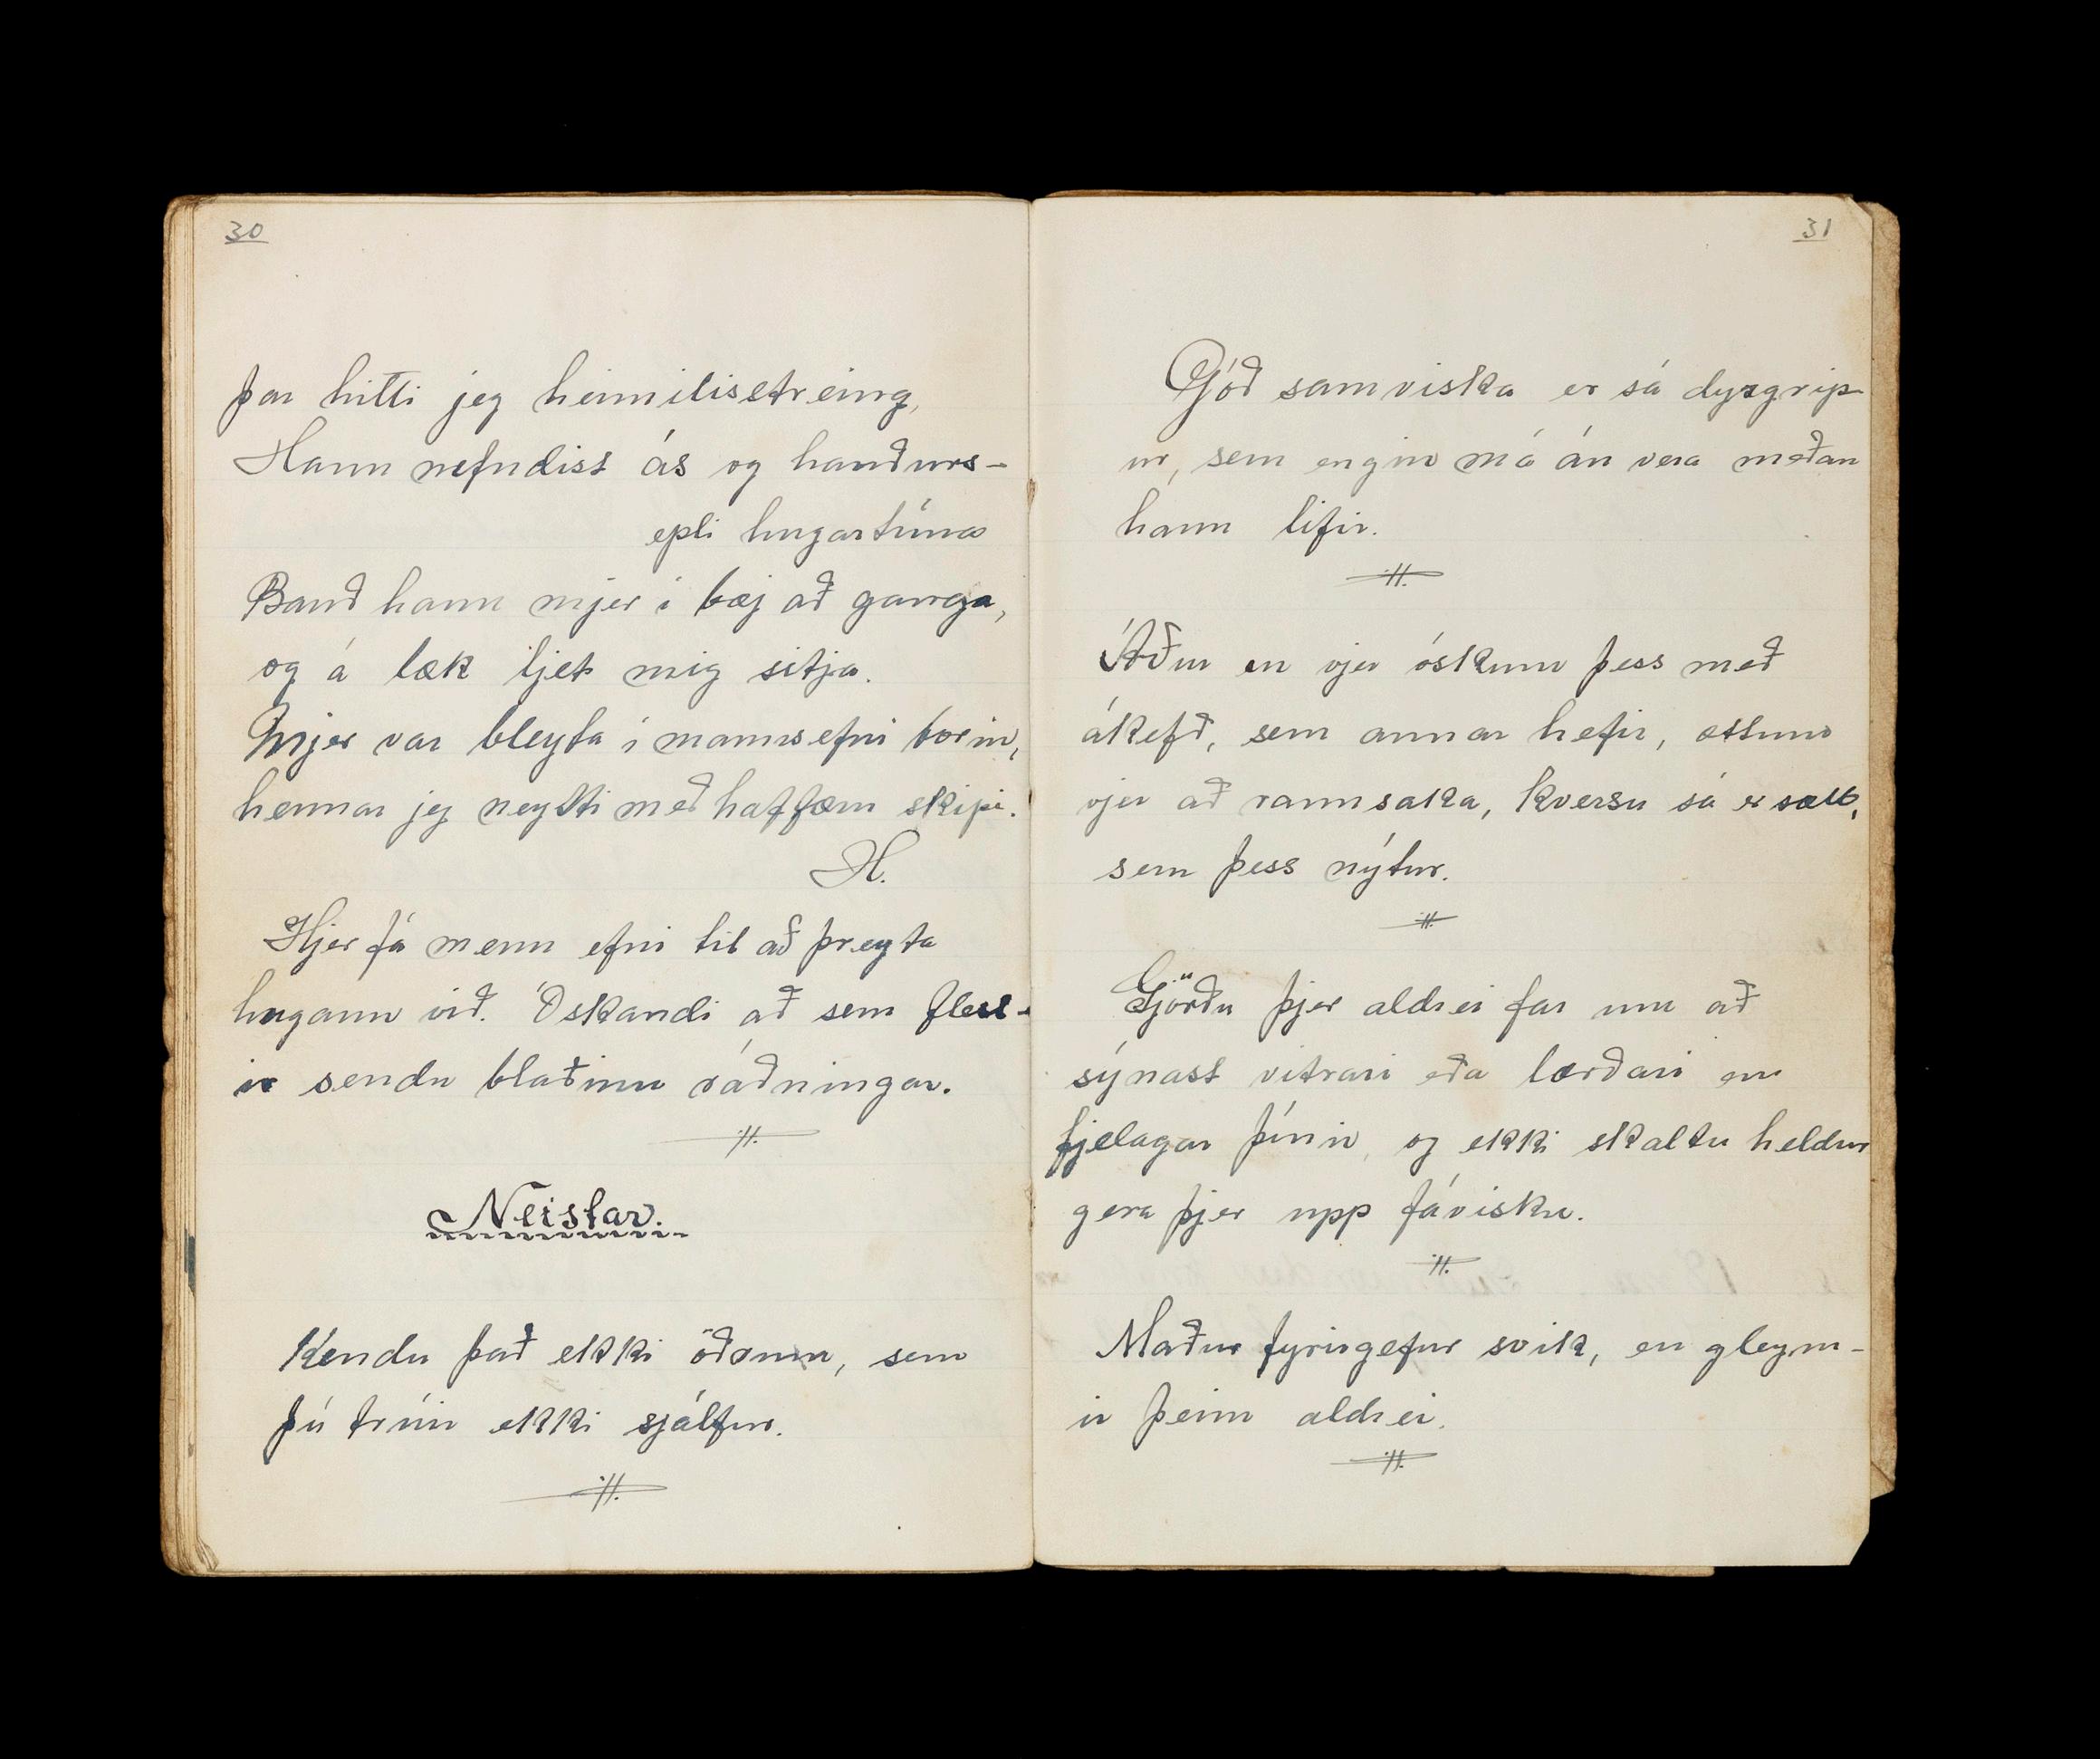 30
Þar hitti jeg heimilisstreing,
Hann nefndist ás og handurs-
epli hugartúna
Bauð hann mjer í bæj að ganga,
og á læk ljet mig sitja.
Mjer var bleyta í mannsefni borin,
hennar jeg neytti með haffæru skipi.
H.
Hjer fá menn efni til að þreyta
hugann við. Óskandi að sem flest-
ir sendu blaðinu ráðningar.
Neistar.
Kendu það ekki öðrum, sem
þú trúir ekki sjálfur.
31
Góð samviska er sá dyrgrip-
ur, sem engin má án vera meðan
hann lifir.
Áður en vjer óskum þess með
ákefð, sem annar hefir, ættum
vjer að rannsaka, hversu sá er sæll,
sem þess nýtur.
Gjörðu þjer aldrei far um að
sýnast vitrari eða lærðari en
fjelagar þínir, og ekki skaltu heldur
gera þjer upp fávisku.
Maður fyrirgefur svik, en gleym-
ir þeim aldrei.